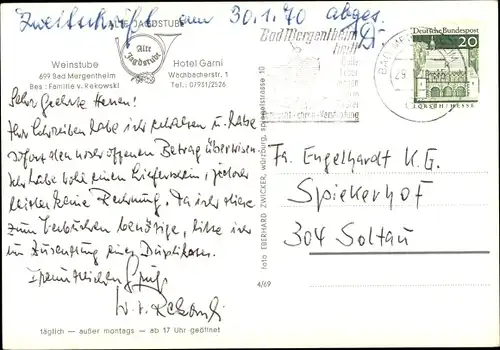 Zweitschrift am 30.1.70 abges.
ALTE JAGDSTUBE
Alte Jagdstube
Weinstube
699 Bad Mergentheim
Bes.: Familie v. Rekowski
Hotel Garni
Wachbacherstr. 1
Tel.: 07931/2526
Bad Mergentheim
heilt
Galle
Leber
Magen
Darm
Zucker
Deutsche Bundespost
20
LORSCH/HESSEN
Sehr Geehrte Herren!
Ihr Schreiben habe ich erhalten u. habe
sofort den noch offenen Betrag überwiesen
Ich habe wohl einen Lieferschein, jedoch
leider keine Rechnung. Da ich diese
zum Verbuchen benötige, bitte ich
um Zusendung eines Duplikates.
Freundlichen Gruß
W. v. Rekowski
Fa. Engelhardt K.G.
Spiekerhof
304 Soltau
foto EBERHARD ZWICKER, würzburg, spiegelstrasse 10
4/69
täglich — außer montags — ab 17 Uhr geöffnet